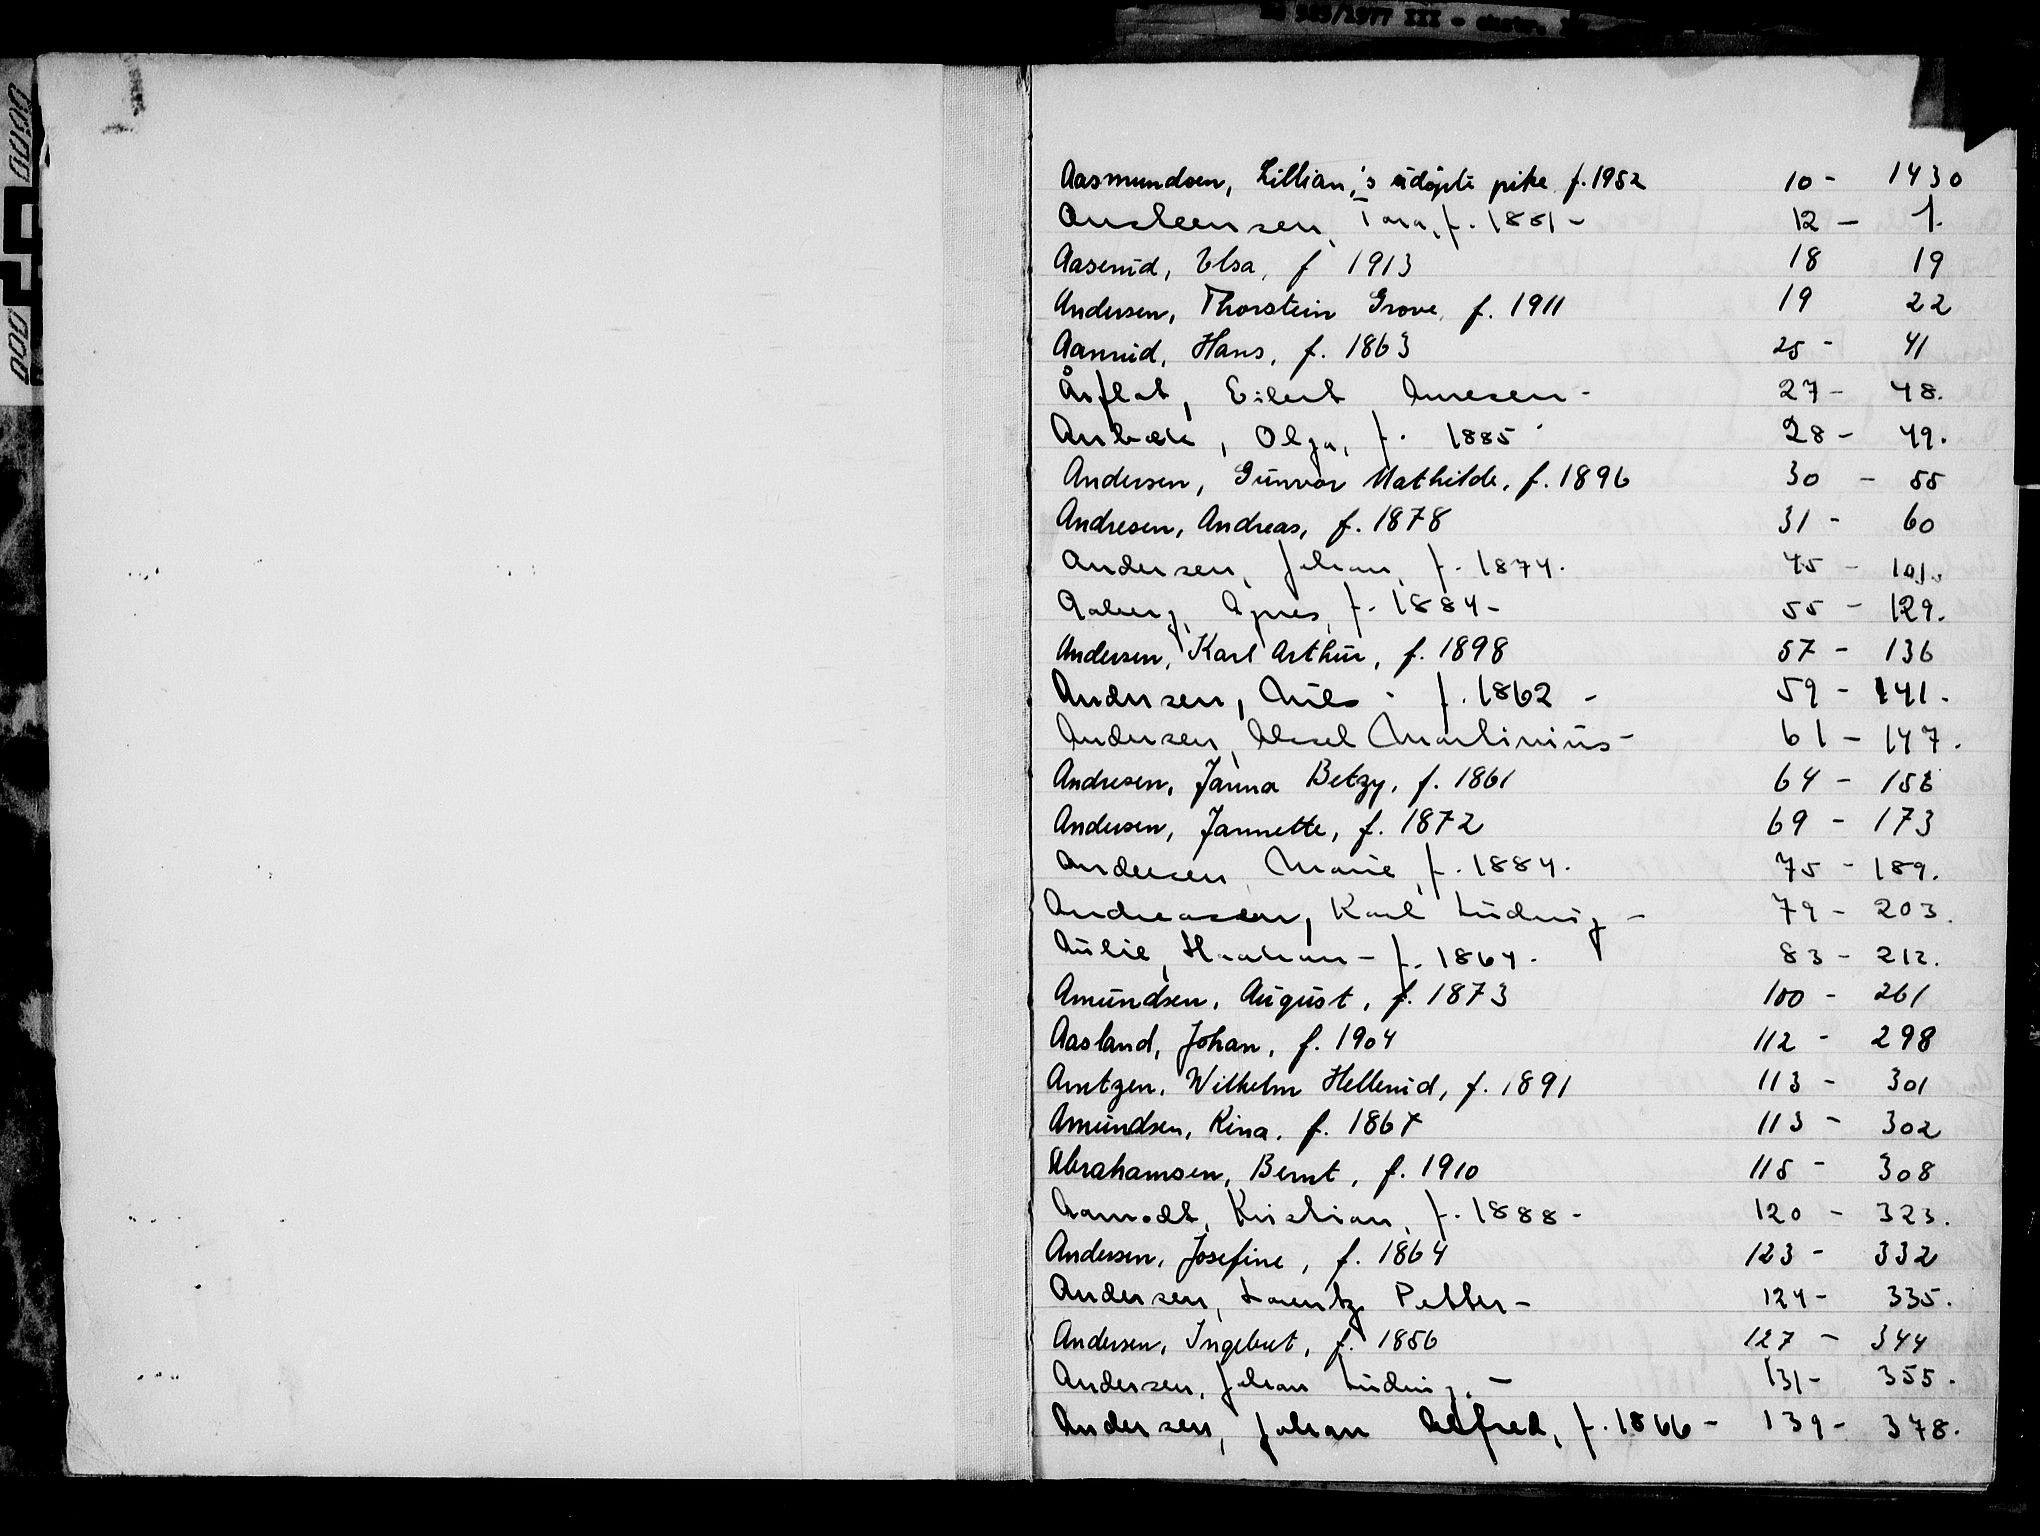 Aasmundsen, Lillian,'s udøpte pike f. 1952 10 - 1430
Austeensen, Tora, f. 1861 - 12 - 1.
Aaserud, Elsa, f 1913 18 19
Andersen, Thorstein Grove, f. 1911 19 22
Aanrud, Hans, f. 1863 25 - 41
Åsflot, Eilert - 27 - 48.
Olga, f. 1885 28 - 49.
Andersen, Gunvor Mathilde, f. 1896 30 - 55
Andresen, Andreas, f. 1878 31 - 60
Andersen, Johan, f. 1874. 45 - 101.
Aaberg, Agnes, f. 1884 - 55 - 129.
Andersen, Karl Arthur, f. 1898 57 - 136
Andersen, Nils - f. 1862 - 59 - 141.
Andersen, Aksel Martinius - 61 - 147.
Andresen, Janna Betzy, f. 1861 64 - 158
Andersen, Jannette, f. 1872 69 - 173
Andersen, Marie, f. 1884. 75 - 189.
Andreassen, Karl Ludvig - 79 - 203.
Aulie, Haakon - f. 1864. 83 - 212.
Amundsen, August, f. 1873 100 - 261
Aasland, Johan, f. 1904 112 - 298
Arntzen, Wilhelm Hellerud, f. 1891 113 - 301
Amundsen, Rina. f. 1867 113 - 302
Abrahamsen, Bernt, f. 1910 115 - 308
Aamodt, Kristian, f. 1888 - 120 - 323.
Andersen, Josefine, f. 1864 123 - 332
Andersen, Lauritz Petter - 124 - 335.
Andersen, Ingebret, f. 1856 127 - 344
Andersen, Johan Ludvig. - 131 - 355.
Andersen, Johan Alfred, f. 1866 - 139 - 378.